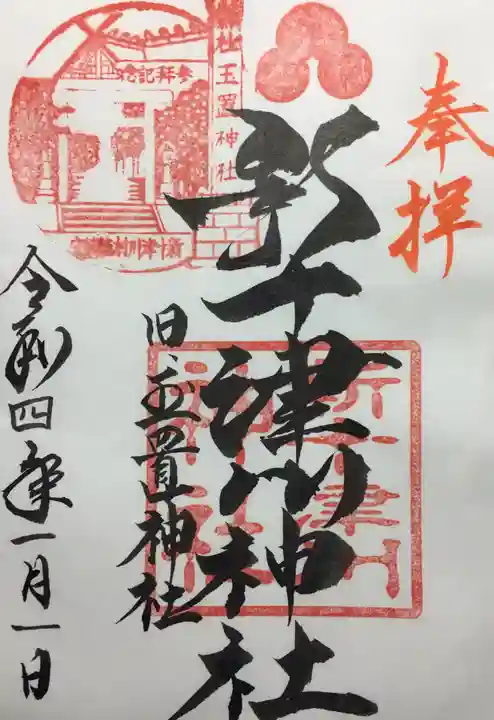 奉拝
新十津川神社
旧玉置神社
令和四年一月一日
参拝記念
社玉置神社
新十津川